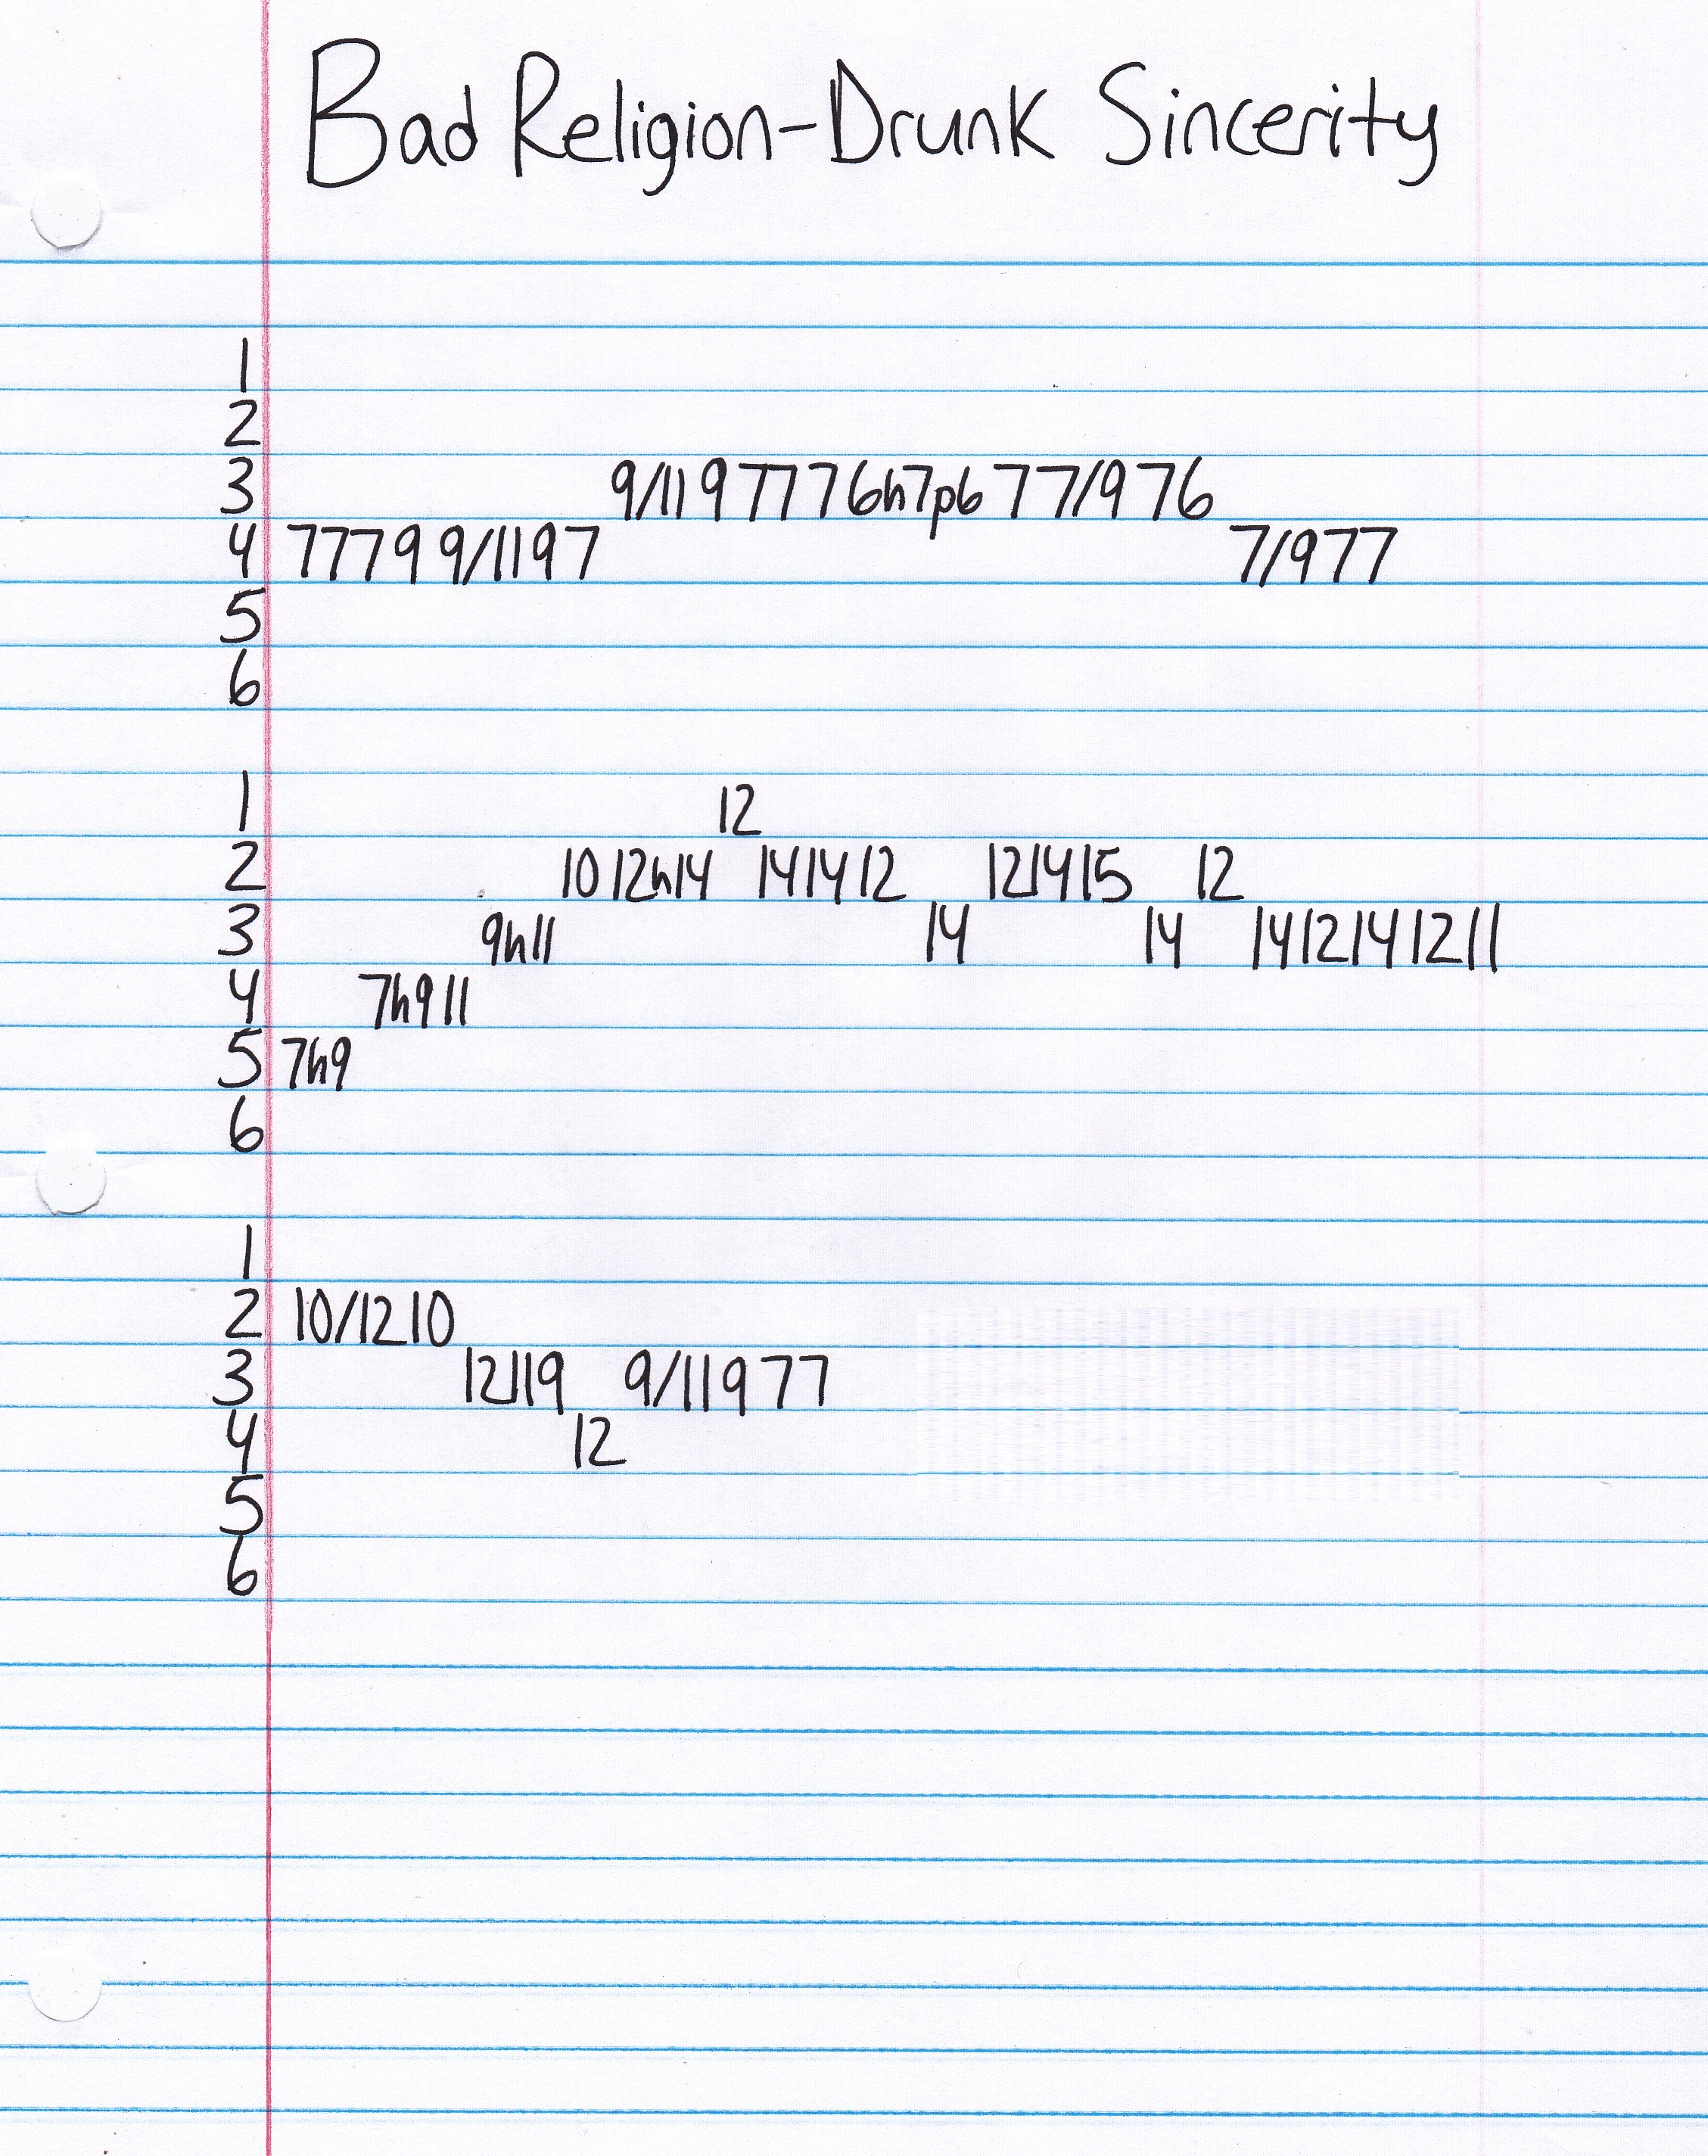 Bad Religion-Drunk Sincerity
1
2
3 9/11 9 7 7 7 6h7p6 7 7/9 7 6
4 7 7 7 9 9/11 9 7 7/9 7 7
5
6
1 12
2 10 12h14 14 14 12 12 14 15 12
3 9h11 14 14 14 12 14 12 11
4 7h9 11
5 7h9
6
1
2 10/12 10
3 12 11 9 9/11 9 7 7
4 12
5
6